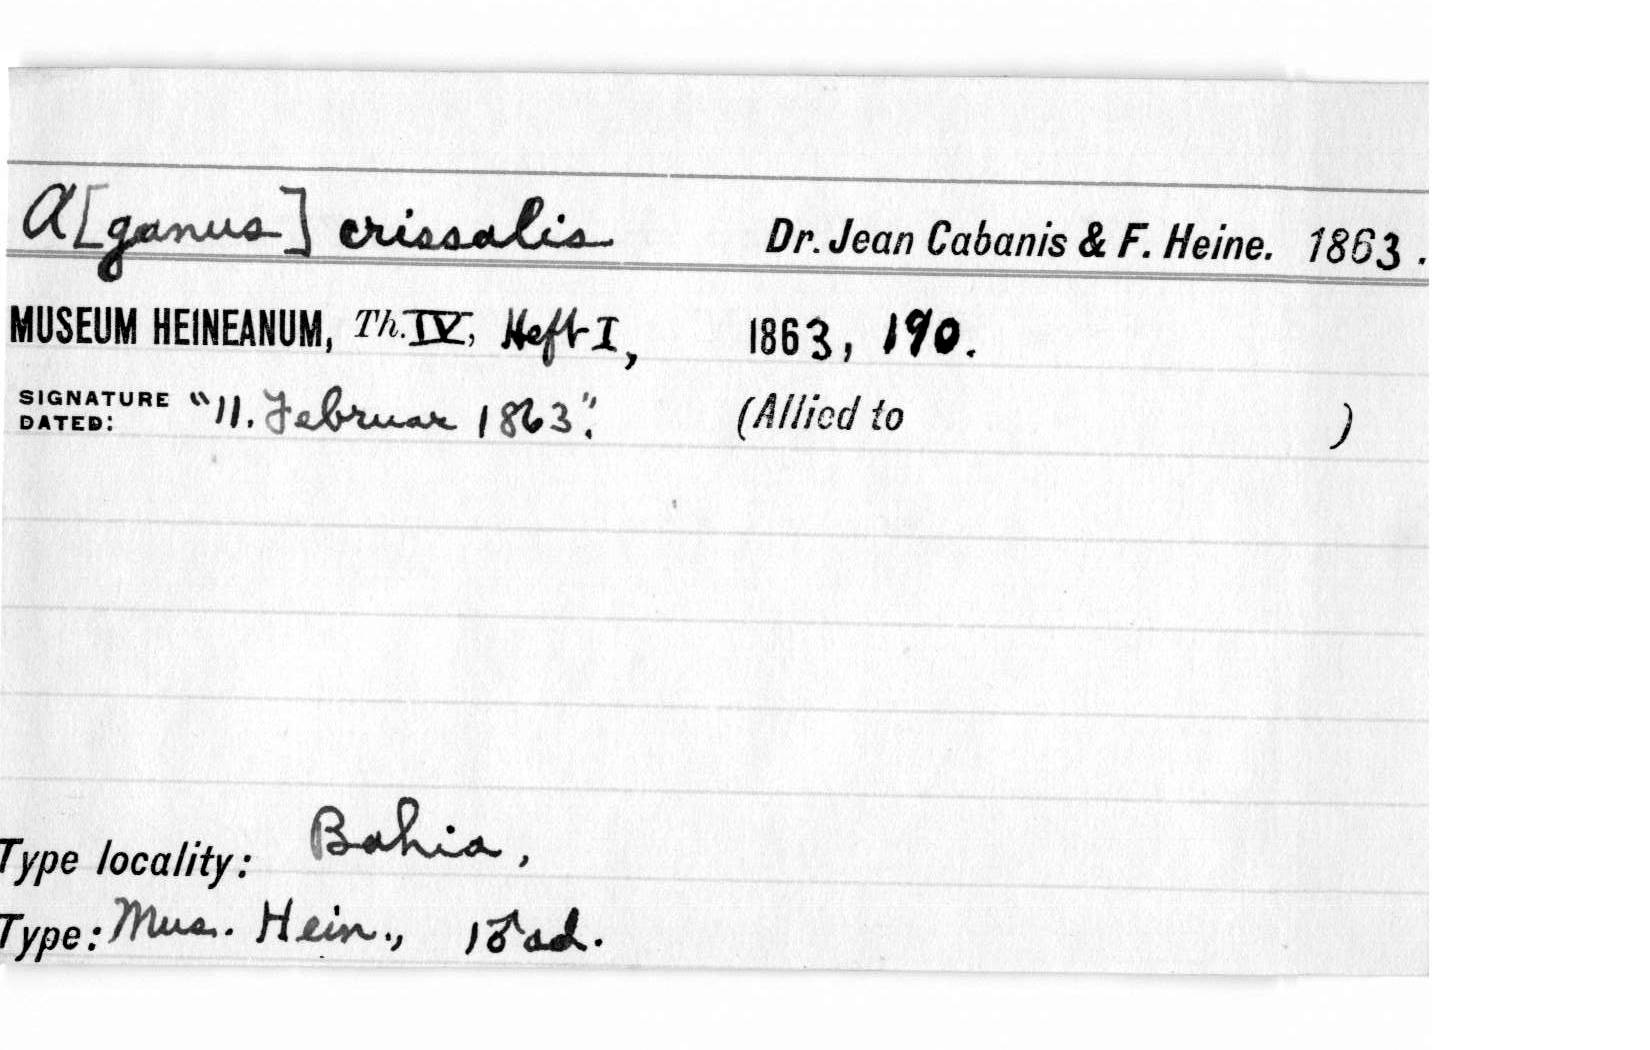 A[ganus] crissalis Dr. Jean Cabanis & F. Heine. 1863.
MUSEUM HEINEANUM, Th. IV, Heft I, 1863, 190.
SIGNATURE DATED: "11. Februar 1863". (Allied to )
Type locality: Bahia,
Type: Mus. Hein., 1♂ ad.